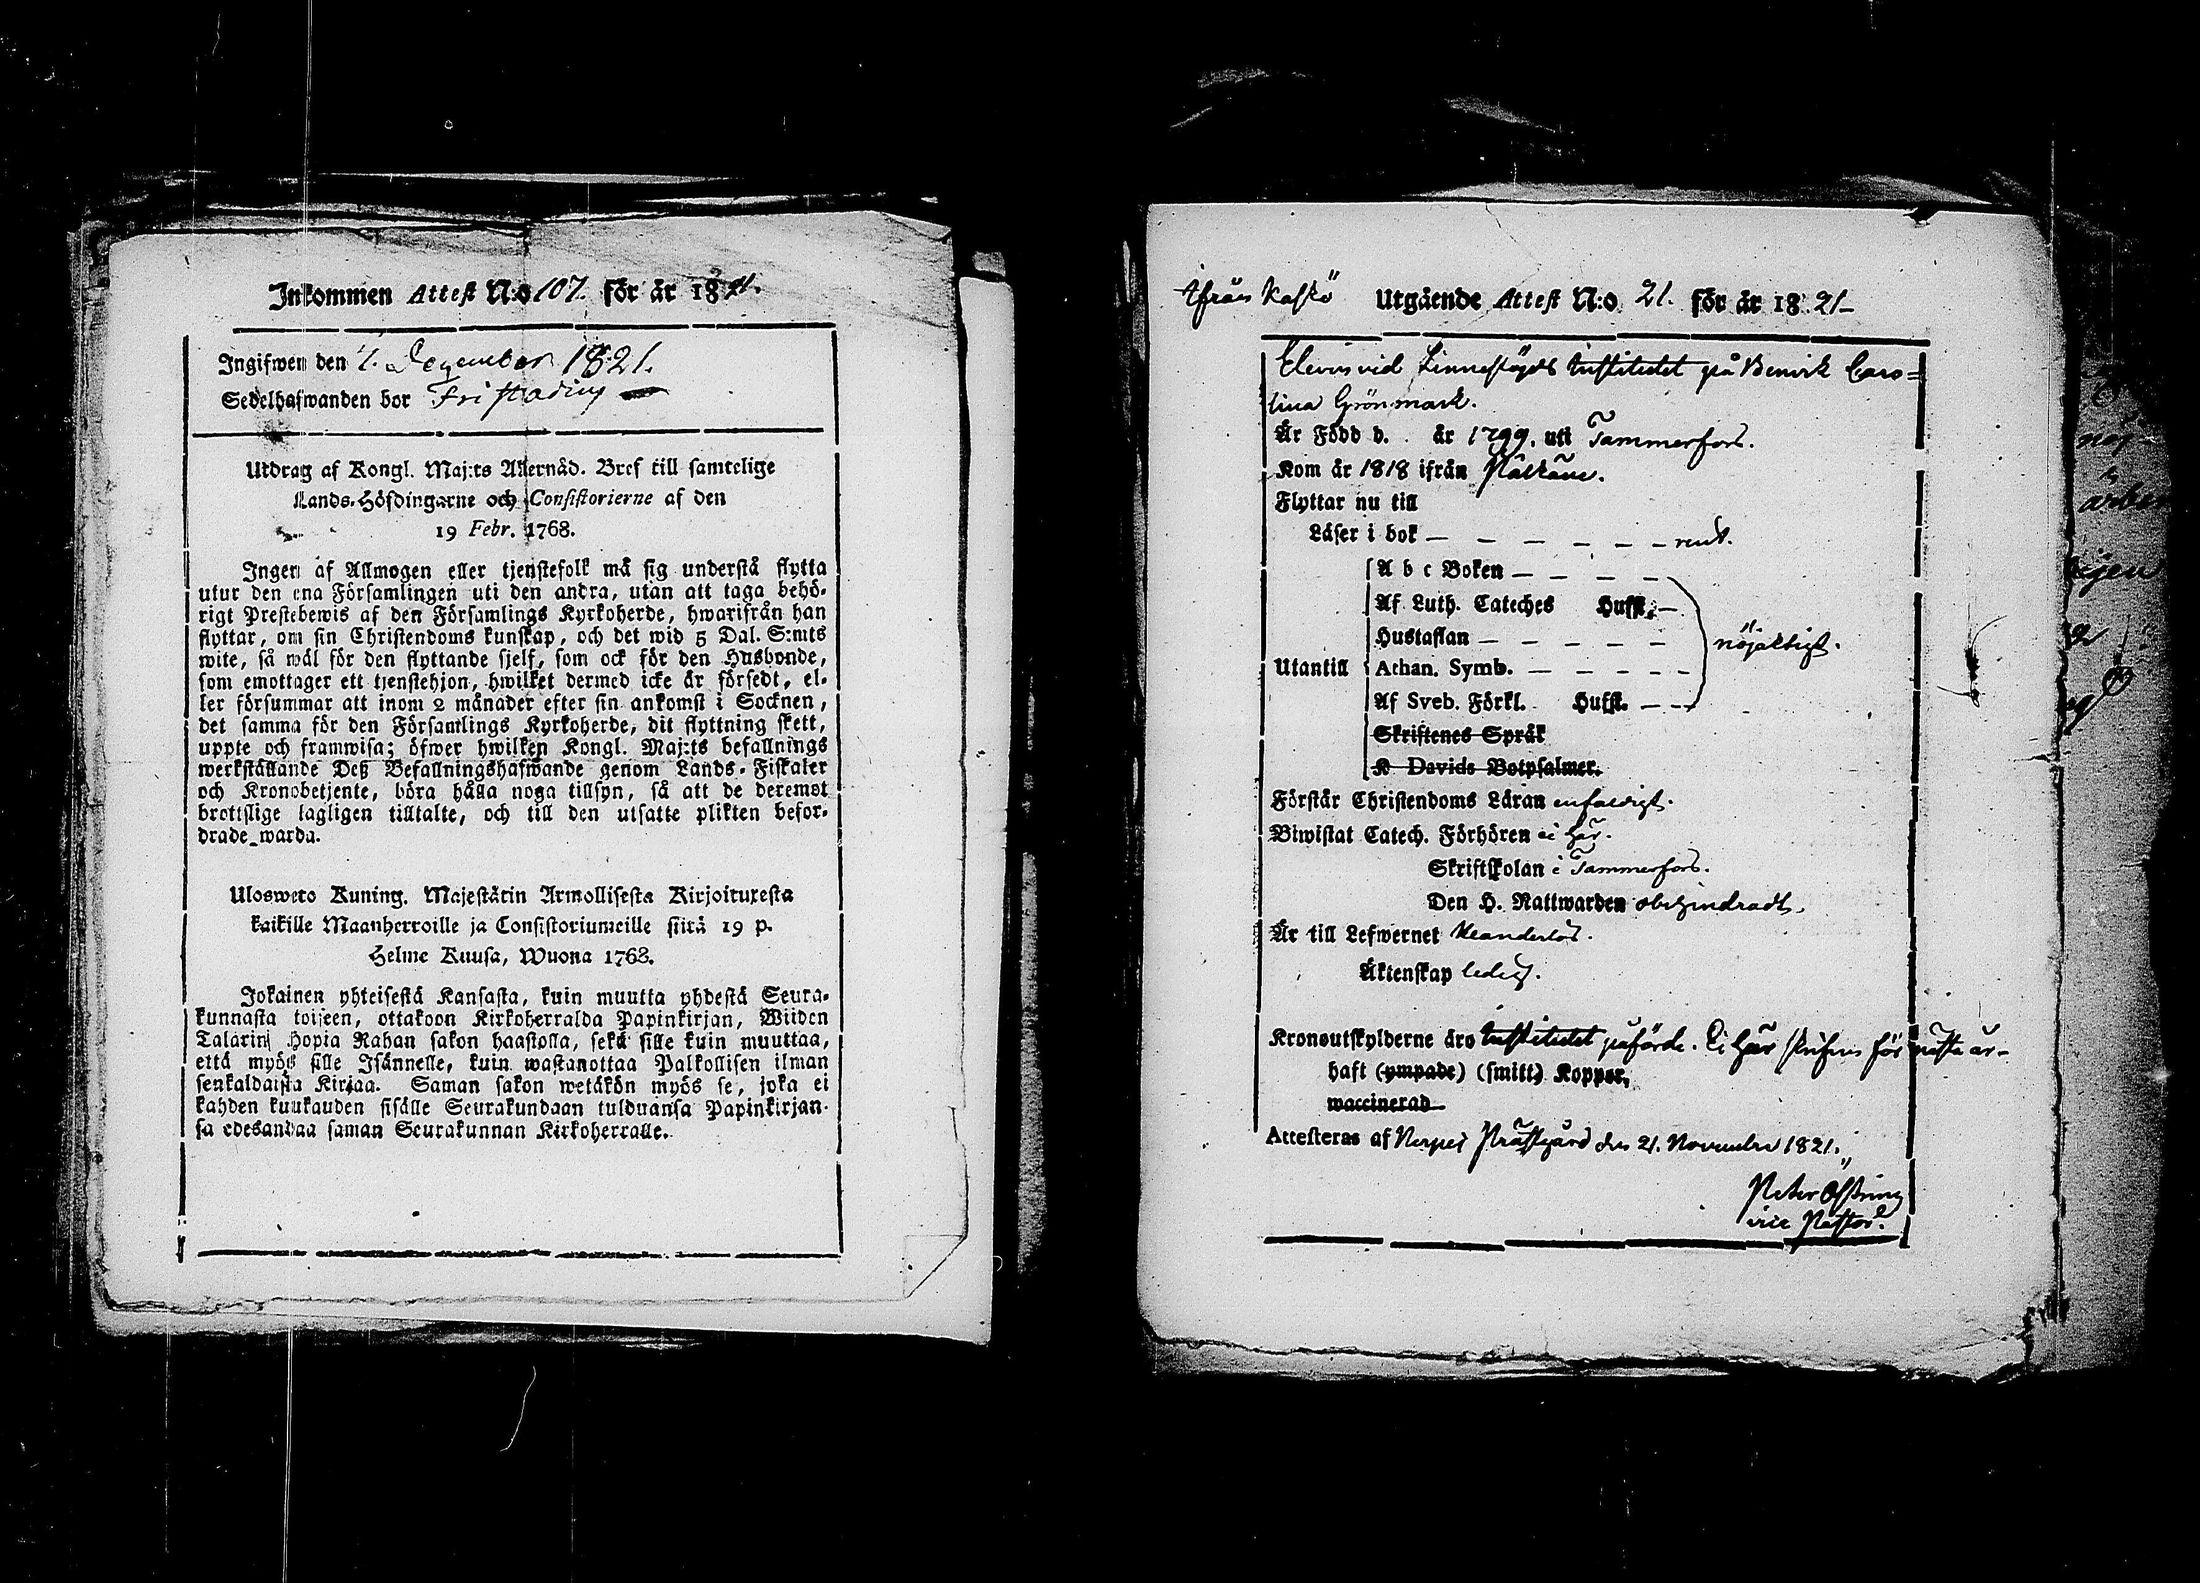 Inkommen Attest N:o 107. för år 1821.
Ingifwen den 4. December 1821.
Sedelhafwanden bor
Utdrag af Kongl. Maj:ts Allernåd. Bref till samtelige
Lands-Höfdingarne och Consistorierne af den
19 Febr. 1768.
Ingen af Allmogen eller tjenstefolk må sig understå flytta
utur den ena Församlingen uti den andra, utan att taga behö-
rigt Prestebewis af den Församlings Kyrkoherde, hwarifrån han
flyttar, om sin Christendoms kunskap, och det wid 5 Dal. S:mts
wite, så wäl för den flyttande sjelf, som ock för den Husbonde,
som emottager ett tjenstehjon, hwilket dermed icke är försedt, el-
ler försummar att inom 2 månader efter sin ankomst i Socknen,
det samma för den Församlings Kyrkoherde, dit flyttning skett,
uppte och framwisa; öfwer hwilken Kongl. Maj:ts befallnings
werkställande Deß Befallningshafwande genom Lands-Fiskaler
och Kronobetjente, böra hålla noga tillsyn, så att de deremot
brottslige lagligen tilltalte, och till den utsatte plikten befor-
drade warda.
Ulosweto Kuning. Majestätin Armollisesta Kirjoituxesta
kaikille Maanherroille ja Consistoriumeille siitä 19 p.
Helme Kuusa, Wuona 1768.
Jokainen yhteisestä Kansasta, kuin muutta yhdestä Seura-
kunnasta toiseen, ottakoon Kirkoherralda Papinkirjan, Wiiden
Talarin Hopia Rahan sakon haastolla, sekä sille kuin muuttaa,
että myös sille Isännelle, kuin wastanottaa Palkollisen ilman
senkaldaista Kirjaa. Saman sakon wetäkön myös se, joka ei
kahden kuukauden sisälle Seurakundaan tulduansa Papinkirjan-
sa edesandaa saman Seurakunnan Kirkoherralle.
Ifrån Kaskö Utgående Attest N:o 21. för år 1821
Eleven vid Linneslöjds Institutet på Benvik Caro=
lina Grönmark.
Är Född d. år 1799. uti Tammerfors.
Kom år 1818 ifrån Pälkäne.
Flyttar nu till
Läser i bok — — — — — — rent.
A b c Boken — — — —
Af Luth. Cateches Hufst. —
Hustaflan — — — — — nöjaktigt.
Utantill Athan. Symb. — — — — —
Af Sveb. Förkl. Hufst. — —
Skriftenes Språk
K Davids Botpsalmer.
Förstår Christendoms Läran enfaldigt.
Biwistat Catech. Förhören ei här.
Skriftskolan i Tammerfors.
Den H. Nattwarden obehindradt.
Är till Lefwernet klanderlös.
Äktenskap ledig.
Kronoutskylderne äro Institutet påförde. Ei här skrifven för nästa år
haft (ympade) (smitt) Koppor,
waccinerad
Attesteras af Nerpes Prästgård den 21. November 1821.
Peter
vice Pastor.